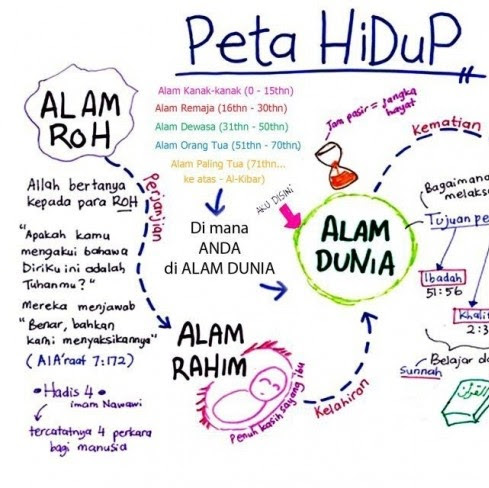 Peta HiDuP
ALAM
ROH
Alam Kanak-kanak (0 - 15thn)
Alam Remaja (16thn - 30thn)
Alam Dewasa (31thn - 50thn)
Alam Orang Tua (51thn - 70thn)
Alam Paling Tua (71thn...
ke atas - Al-Kibar)
Jam pasir = jangka
hayat
Kematian
Perjanjian
Allah bertanya
kepada para ROH
"Apakah kamu
mengakui bahawa
Diriku ini adalah
Tuhanmu?"
Mereka menjawab
"Benar, bahkan
kami menyaksikannya"
(Al A'raaf 7:172)
• Hadis 4 •
imam Nawawi
tercatatnya 4 perkara
bagi manusia
Di mana
ANDA
di ALAM DUNIA
AKU DISINI
ALAM
DUNiA
ALAM
RAHIM
Penuh kasih sayang ibu
Kelahiran
Bagaimana
melaks
Tujuan pe
Ibadah
51:56
Khali
2:3
Belajar da
Sunnah
القرآن